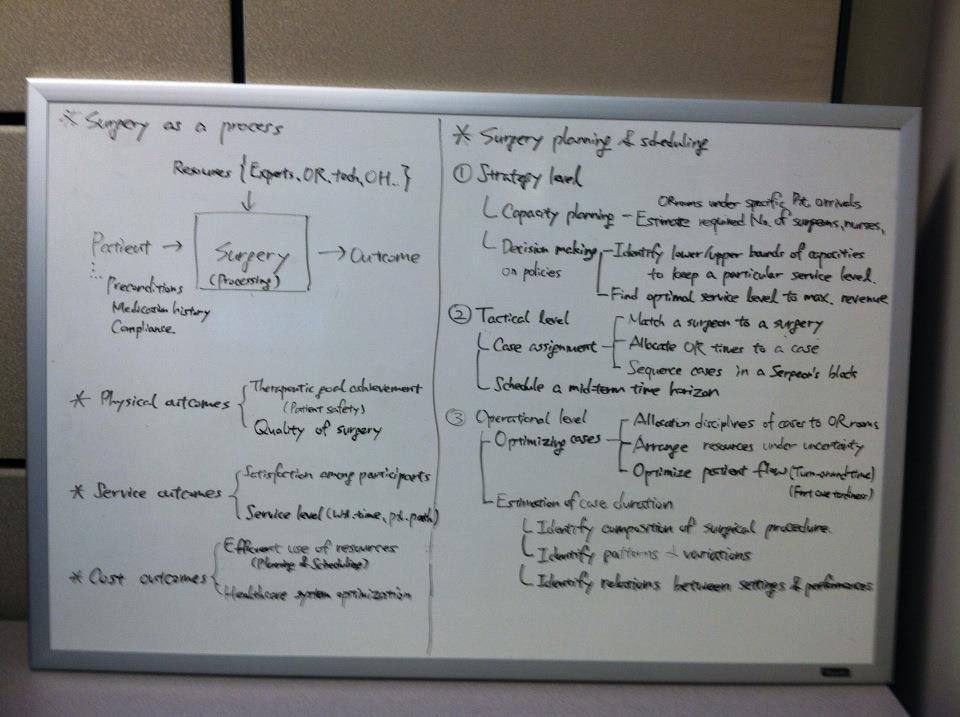 * Surgery as a process
Resources {Experts, OR, tech, OH.. }
Patient → Surgery → Outcome
(Processing)
Preconditions
Medication history
Compliance.
* Physical outcomes
Therapeutic goal achievement
(Patient safety)
Quality of surgery
* Service outcomes
Satisfaction among participants
Service level (Wt. time, pt. path)
* Cost outcomes
Efficient use of resources
(Planning & Scheduling)
Healthcare system optimization
* Surgery planning & scheduling
① Strategy level
Capacity planning – Estimate required No. of surgeons, nurses,
OR rooms under specific Pt. arrivals
Decision making
on policies
Identify lower/upper bounds of capacities
to keep a particular service level.
Find optimal service level to max. revenue
② Tactical level
Case assignment
Match a surgeon to a surgery
Allocate OR times to a case
Sequence cases in a Surgeon's block
Schedule a mid-term time horizon
③ Operational level
Optimizing cases
Allocation disciplines of cases to OR rooms
Arrange resources under uncertainty
Optimize patient flow (Turn-around time)
Estimation of case duration
Identify composition of surgical procedure.
Identify patterns + variations
Identify relations between settings & performances